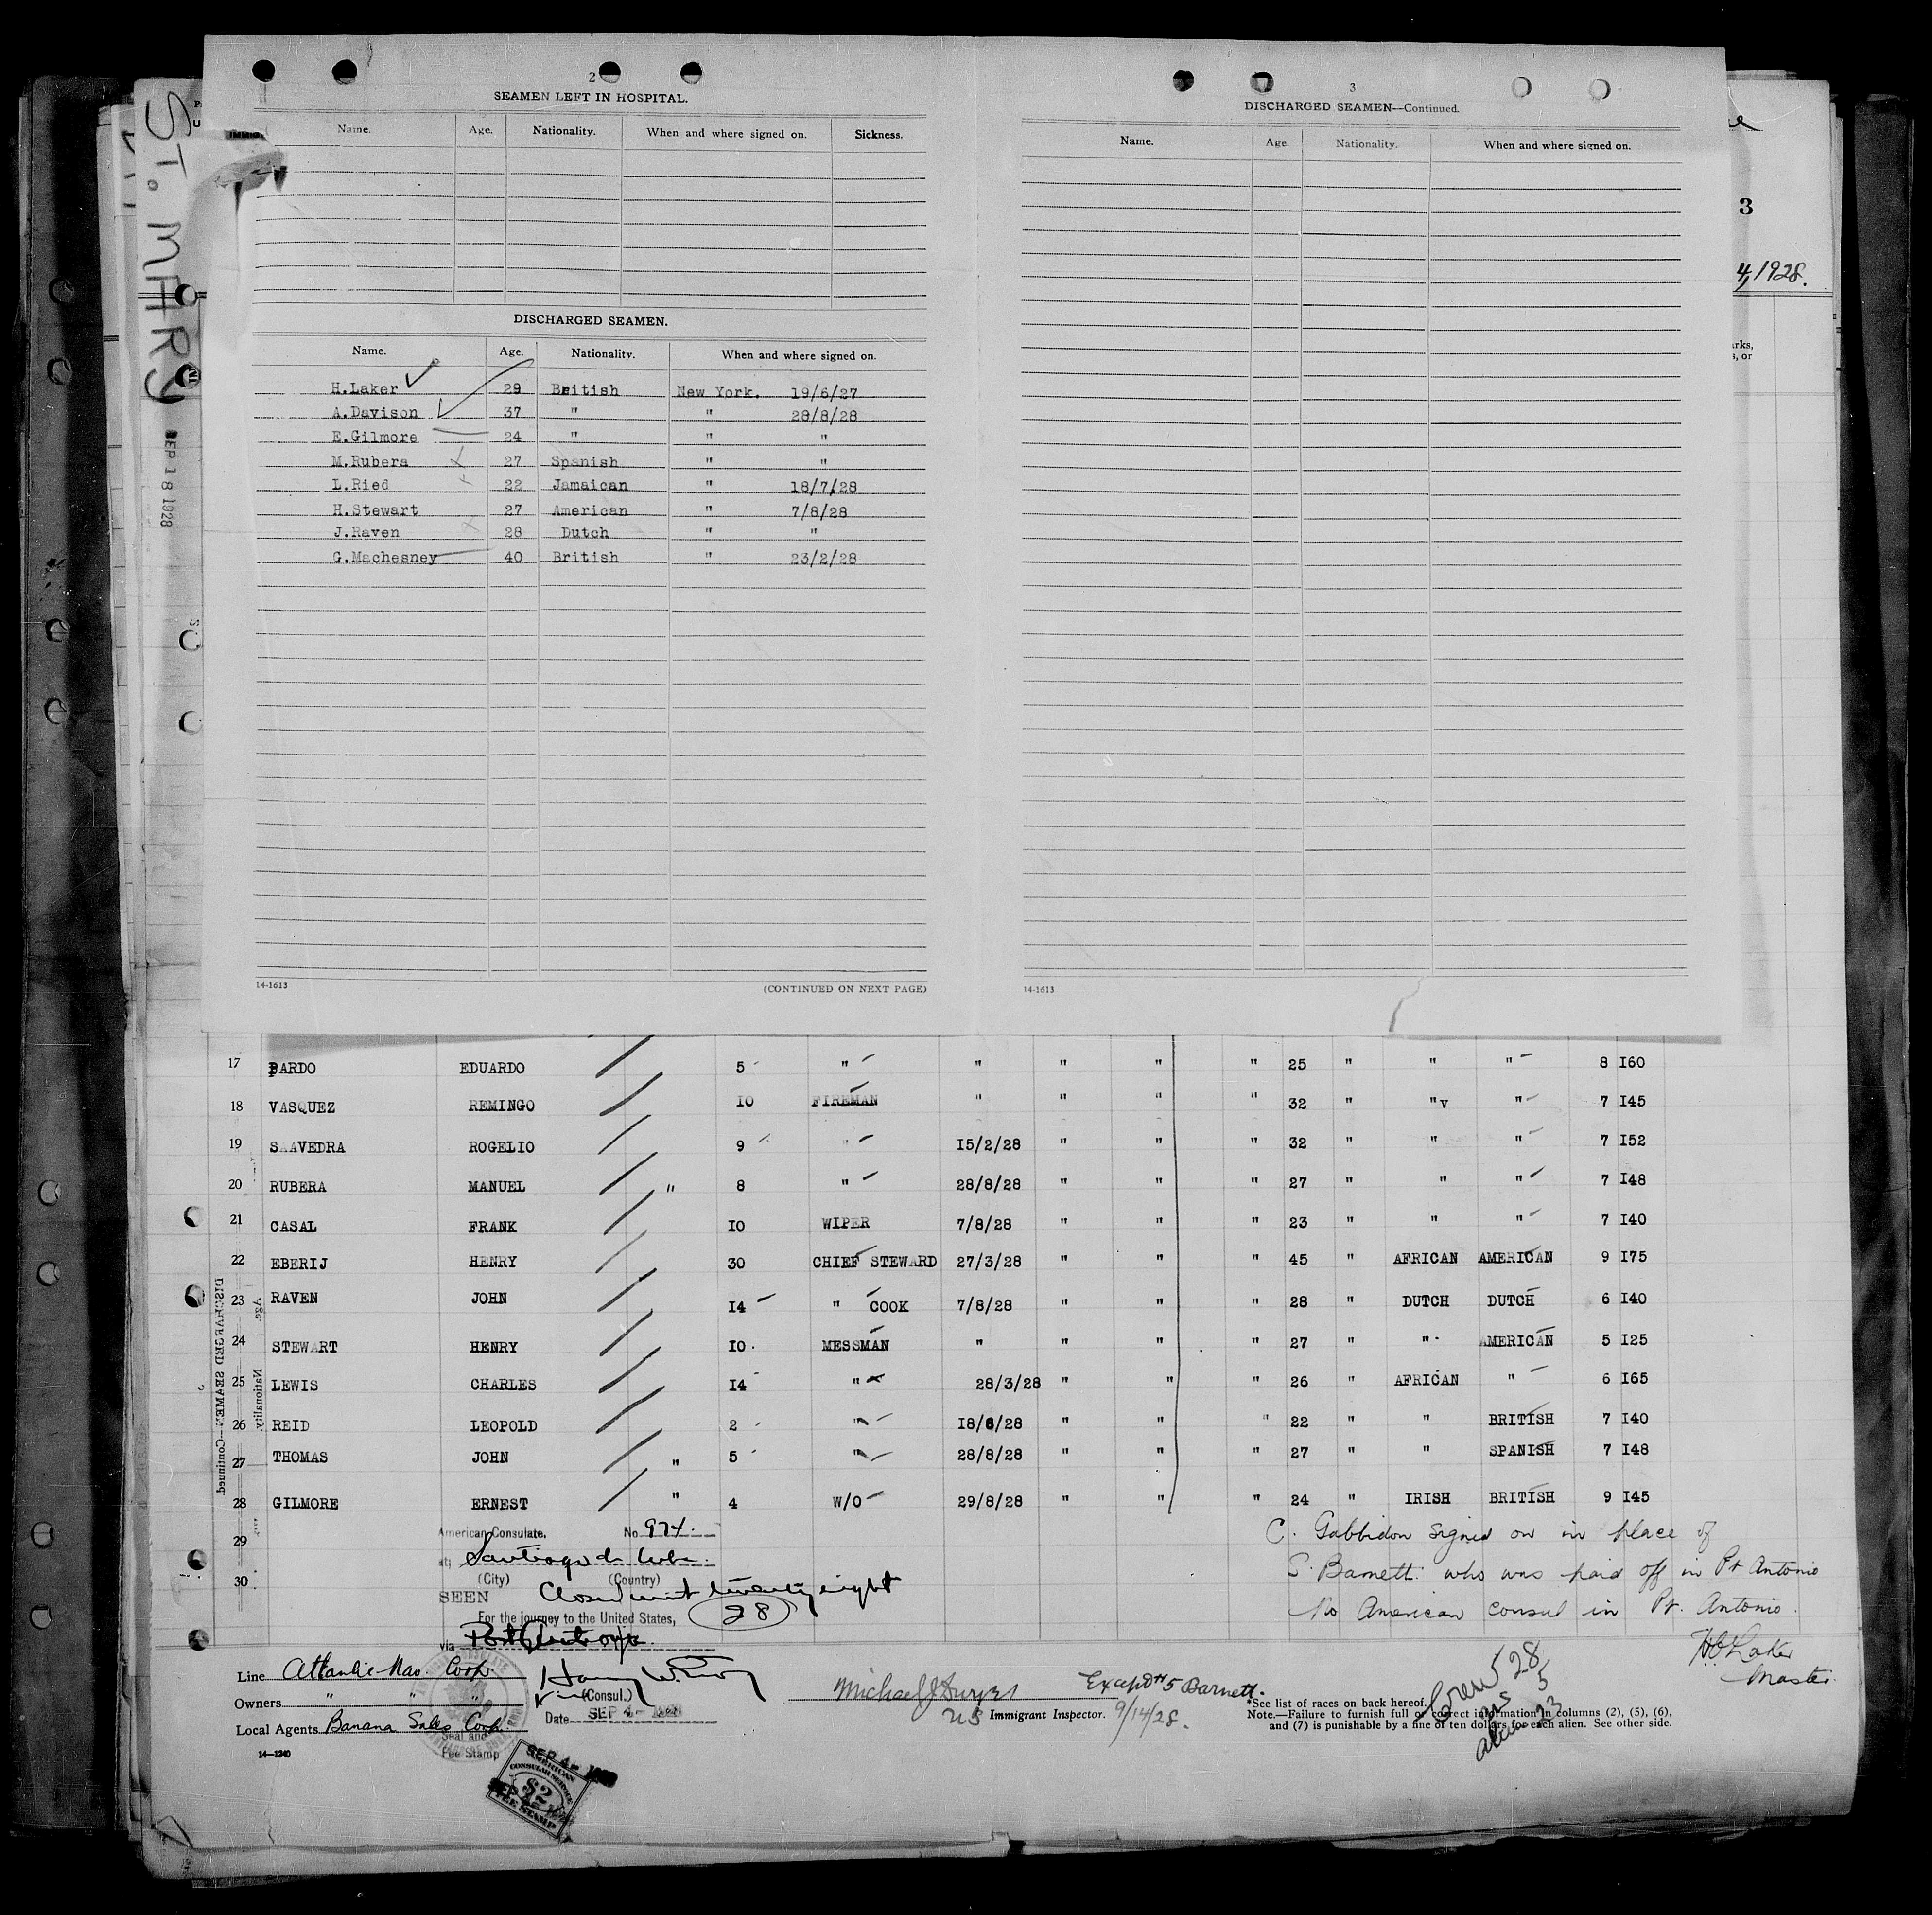 ST. MARY
SEP 18 1928
2
SEAMEN LEFT IN HOSPITAL.
Name. Age. Nationality. When and where signed on. Sickness.
DISCHARGED SEAMEN.
Name. Age. Nationality. When and where signed on.
H.Laker 29 British New York. 19/6/27
A.Davison 37 " " 28/8/28
E.Gilmore 24 " " "
M.Rubera 27 Spanish " "
L.Ried 22 Jamaican " 18/7/28
H.Stewart 27 American " 7/8/28
J.Raven 28 Dutch " "
G.Machesney 40 British " 23/2/28
14-1613 (CONTINUED ON NEXT PAGE)
3
DISCHARGED SEAMEN—Continued.
Name. Age. Nationality. When and where signed on.
14-1613
3
4, 1928.
17 PARDO EDUARDO 5 " " " " " 25 " " " 8 I60
18 VASQUEZ REMINGO IO FIREMAN " " " " 32 " "v " 7 I45
19 SAAVEDRA ROGELIO 9 " I5/2/28 " " " 32 " " " 7 I52
20 RUBERA MANUEL " 8 " 28/8/28 " " " 27 " " " 7 I48
21 CASAL FRANK IO WIPER 7/8/28 " " " 23 " " " 7 I40
22 EBERIJ HENRY 30 CHIEF STEWARD 27/3/28 " " " 45 " AFRICAN AMERICAN 9 I75
23 RAVEN JOHN I4 " COOK 7/8/28 " " " 28 " DUTCH DUTCH 6 I40
24 STEWART HENRY IO. MESSMAN " " " " 27 " " AMERICAN 5 I25
25 LEWIS CHARLES I4 " 28/3/28 " " " 26 " AFRICAN " 6 I65
26 REID LEOPOLD 2 " I8/6/28 " " " 22 " " BRITISH 7 I40
27 THOMAS JOHN " 5 " 28/8/28 " " " 27 " " SPANISH 7 I48
28 GILMORE ERNEST " 4 W/O 29/8/28 " " " 24 " IRISH BRITISH 9 I45
29
30
DISCHARGED SEAMEN—Continued.
Age.
Nationality.
American Consulate. No 974.
at Santiago de Cuba.
(City) (Country)
SEEN Closed with twenty eight
For the journey to the United States, (28)
via
(Consul.)
Date SEP 4- 1928
Seal and
Fee Stamp
C. Gabbidon signed on in place of
S. Barnett who was paid off in Pt Antonio
No American consul in Pt. Antonio.
H C Laker
Master.
Line Atlantic Nav. Corp.
Owners " " "
Local Agents Banana Sales Corp.
14—1240
SEP 4- 1928
AMERICAN
CONSULAR SERVICE
$2
FEE STAMP
Except #5 Barnett.
US Immigrant Inspector. 9/14/28.
Crew 28
U.S 5
Aliens 23
*See list of races on back hereof.
Note.—Failure to furnish full or correct information in columns (2), (5), (6),
and (7) is punishable by a fine of ten dollars for each alien. See other side.